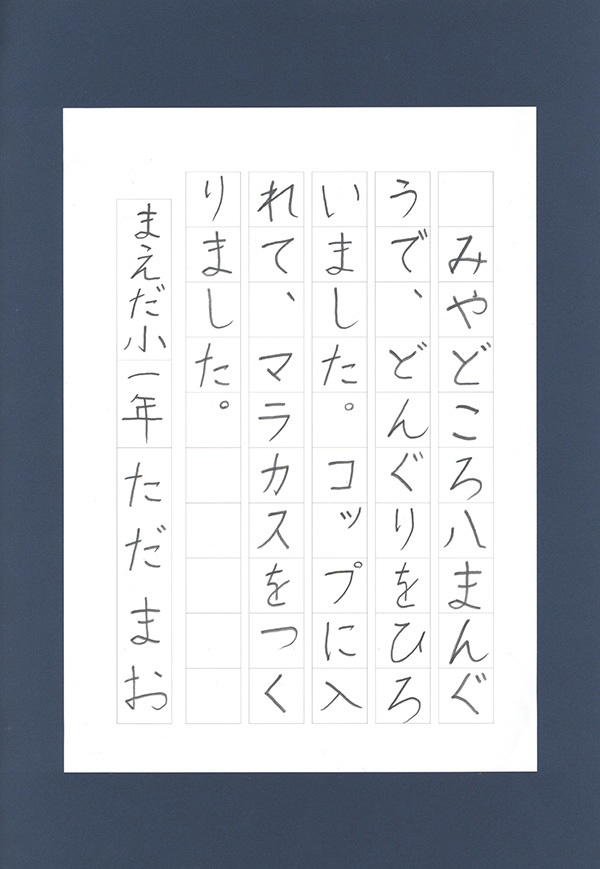 みやどころ八まんぐ
うで、どんぐりをひろ
いました。コップに入
れて、マラカスをつく
りました。
まえだ小一年 ただ まお